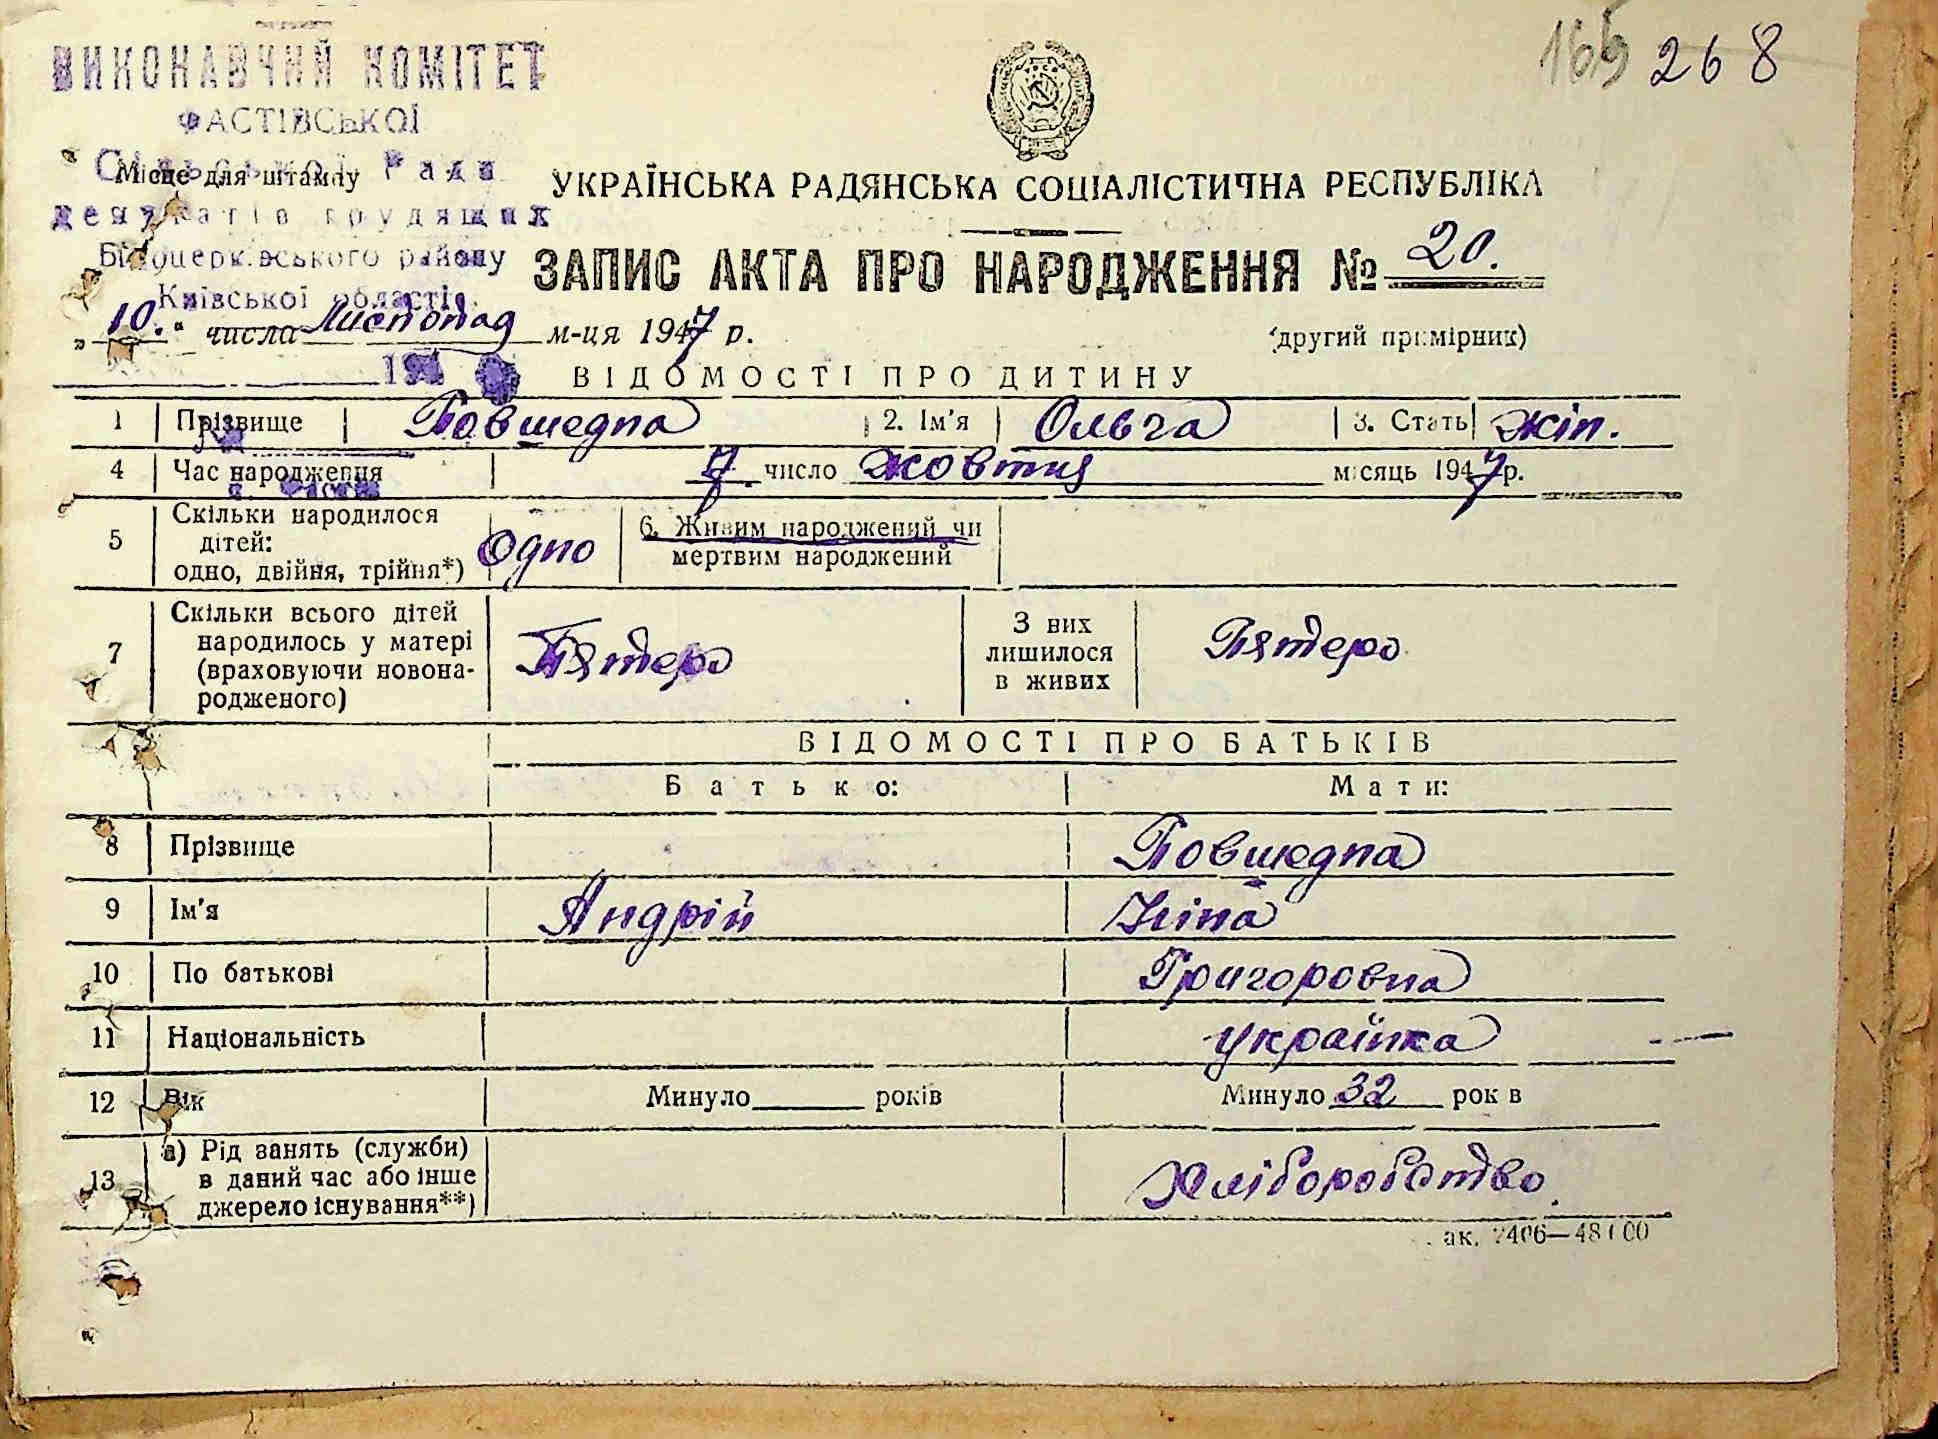 165 268
ВИКОНАВЧИЙ КОМІТЕТ
ФАСТІВСЬКОЇ
Сільської Ради
депутатів трудящих
Білоцерківського району
Київської області
Місце для штампу
194
УКРАЇНСЬКА РАДЯНСЬКА СОЦІАЛІСТИЧНА РЕСПУБЛІКА
ЗАПИС АКТА ПРО НАРОДЖЕННЯ № 20.
„10.“ числа Листопад м-ця 1947 р.
(другий примірник)
ВІДОМОСТІ ПРО ДИТИНУ
1 Прізвище Бовшедна 2. Ім'я Ольга 3. Стать жін.
4 Час народження 7 число жовтня місяць 1947 р.
5 Скільки народилося дітей: одно, двійня, трійня*) Одно 6. Живим народжений чи мертвим народжений
7 Скільки всього дітей народилось у матері (враховуючи новонародженого) Пятеро З них лишилося в живих Пятеро
ВІДОМОСТІ ПРО БАТЬКІВ
Батько: Мати:
8 Прізвище Бовшедна
9 Ім'я Андрій Ніна
10 По батькові Григоровна
11 Національність українка
12 Вік Минуло років Минуло 32 років
13 а) Рід занять (служби) в даний час або інше джерело існування**) Хліборобство.